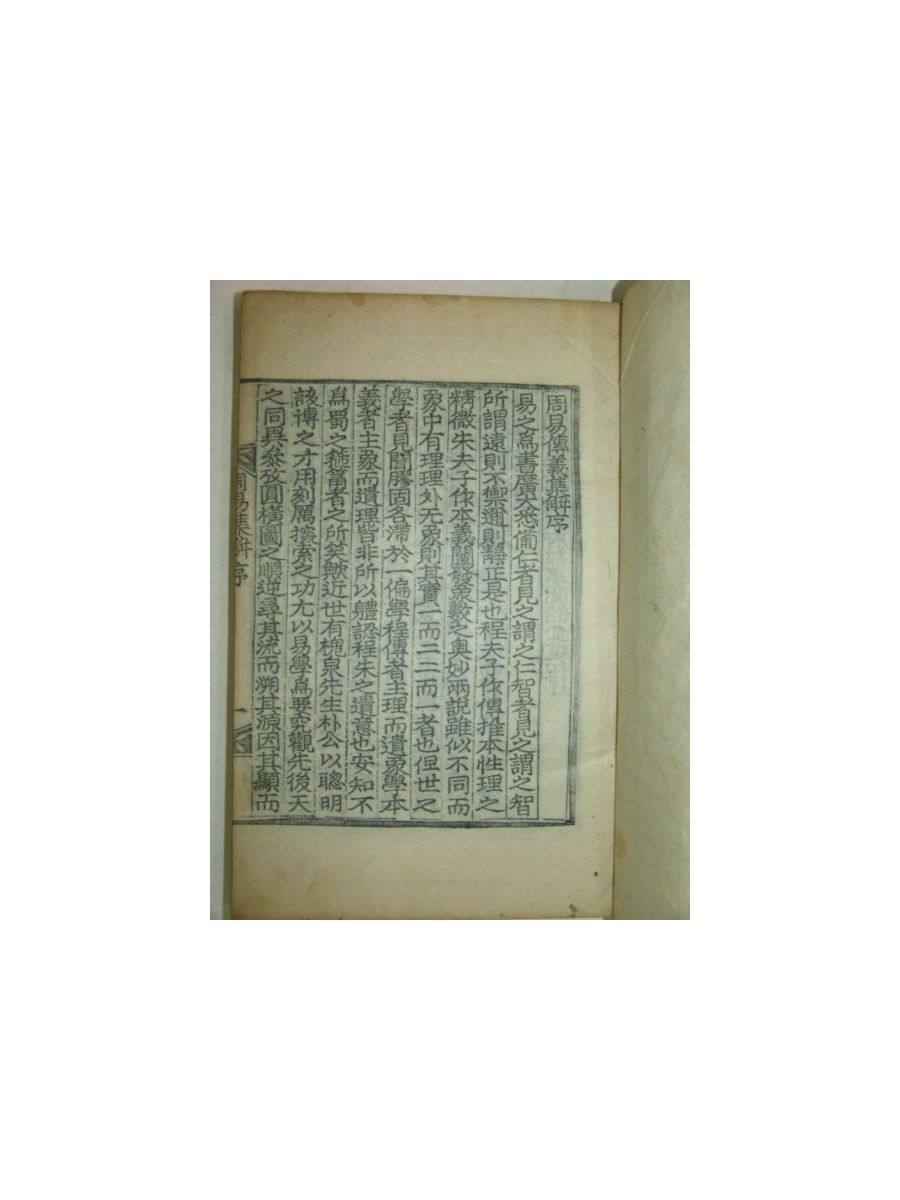 周易傳義集解序
易之爲書廣大悉備仁者見之謂之仁智者見之謂之智
所謂遠則不禦邇則靜正是也程夫子作傳推本性理之
精微朱夫子作本義闡發象數之奧妙兩說雖似不同而
象中有理理外无象則其實一而二二而一者也但世之
學者見聞膠固各滯於一偏學程傳者主理而遺象學本
義者主象而遺理皆非所以體認程朱之遺意也安知不
爲蜀之箍篅者之所笑歟近世有槐泉先生朴公以聰明
該博之才用刻厲探索之功尤以易學爲要究觀先後天
之同異參攷圓橫圖之順逆尋其流而溯其源因其顯而
周易集解序 一